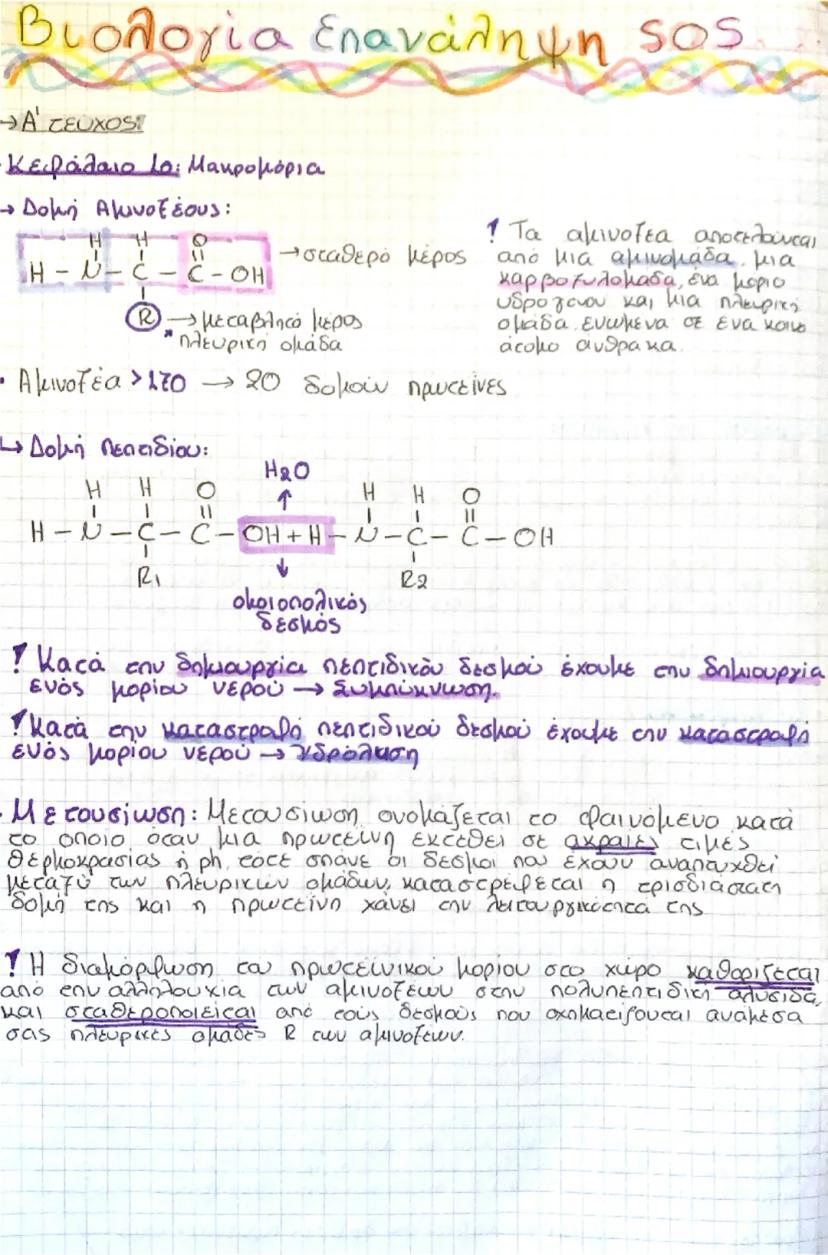 Βιολογία Επανάληψη SOS
→ Α' τεύχος:
Κεφάλαιο 1ο: Μακρομόρια
→ Δομή Αμινοξέους:
H H O
H – N – C – C – OH → σταθερό μέρος
R → μεταβλητό μέρος
* πλευρική ομάδα
! Τα αμινοξέα αποτελούνται
από μια αμινομάδα, μια
καρβοξυλομάδα, ένα μόριο
υδρογόνου και μια πλευρική
ομάδα ενωμένα σε ένα κοινό
άτομο άνθρακα.
• Αμινοξέα >170 → 20 δομούν πρωτεΐνες
↳ Δομή πεπτιδίου:
H2O
H H O ↑ H H O
H – N – C – C – OH + H – N – C – C – OH
R1 ↓ R2
ομοιοπολικός
δεσμός
! Κατά την δημιουργία πεπτιδικού δεσμού έχουμε την δημιουργία
ενός μορίου νερού → Συμπύκνωση.
! Κατά την καταστροφή πεπτιδικού δεσμού έχουμε την καταστροφή
ενός μορίου νερού → Υδρόλυση
• Μετουσίωση: Μετουσίωση ονομάζεται το φαινόμενο κατά
το οποίο όταν μια πρωτεΐνη εκτεθεί σε ακραίες τιμές
θερμοκρασίας ή ph, τότε σπάνε οι δεσμοί που έχουν αναπτυχθεί
μεταξύ των πλευρικών ομάδων, καταστρέφεται η τρισδιάστατη
δομή της και η πρωτεΐνη χάνει την λειτουργικότητά της
! Η διαμόρφωση του πρωτεϊνικού μορίου στο χώρο καθορίζεται
από την αλληλουχία των αμινοξέων στην πολυπεπτιδική αλυσίδα,
και σταθεροποιείται από τους δεσμούς που σχηματίζονται ανάμεσα
στις πλευρικές ομάδες R των αμινοξέων.